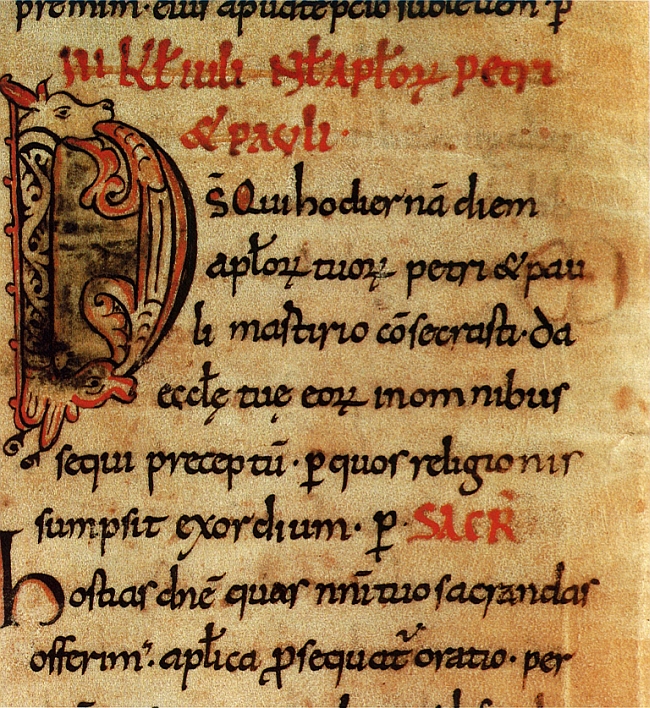 premium · eius apud te p̄cio subleuem · ꝑ
III kɫ iuli Nɫ apɫoꝝ petri
& pauli ·
D
s̄ Qui hodiernā diem
apɫoꝝ tuoꝝ petri & pau
li martirio cōsecrasti · da
eccɫę tuę eoꝝ in omnibus
sequi preceptū · ꝑ quos religionis
sumpsit exordium · ꝑ · SACR̄
hostias dn̄e quas nm̄i tuo sacrandas
offerimꝰ · apɫica ꝓsequat᷑ oratio · per